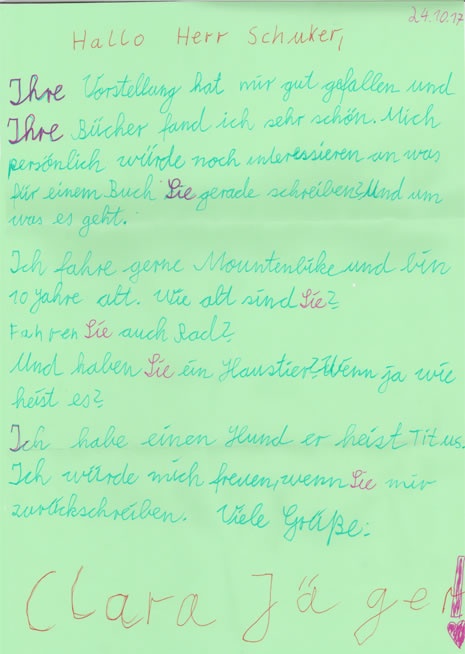 24.10.17
Hallo Herr Schuker,
Ihre Vorstellung hat mir gut gefallen und
Ihre Bücher fand ich sehr schön. Mich
persönlich würde noch interessieren an was
für einem Buch Sie gerade schreiben? Und um
was es geht.
Ich fahre gerne Mountenbike und bin
10 Jahre alt. Wie alt sind Sie?
Fahren Sie auch Rad?
Und haben Sie ein Haustier? Wenn ja wie
heist es?
Ich habe einen Hund er heist Titus.
Ich würde mich freuen, wenn Sie mir
zurückschreiben. Viele Grüße:
Clara Jäger!